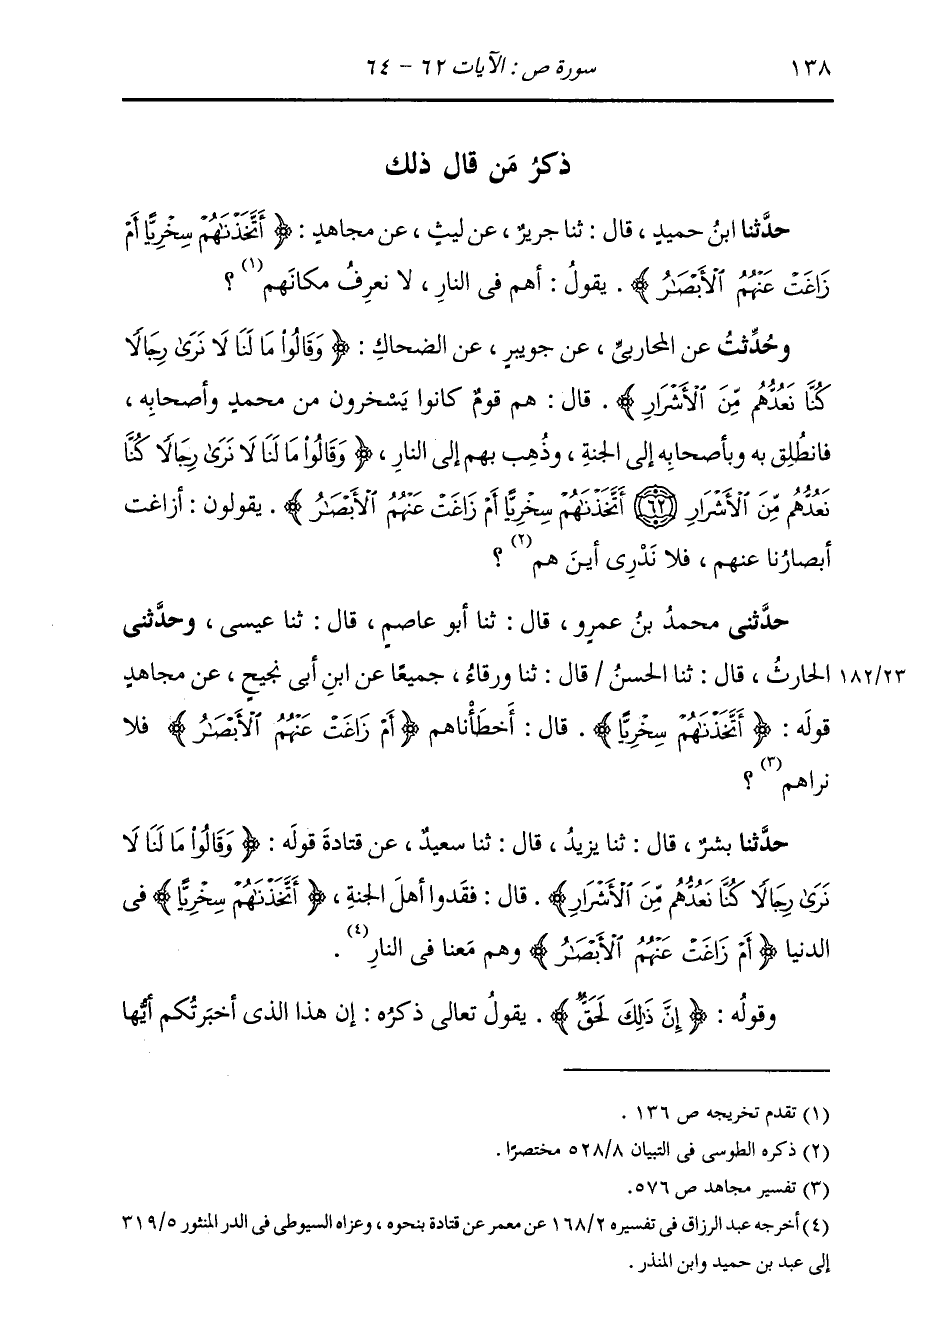 ١٣٨ سورة ص : الآيات ٦٢ - ٦٤
ذكرُ مَن قال ذلك
حدَّثنا ابنُ حميدٍ ، قال : ثنا جريرٌ ، عن ليثٍ ، عن مجاهدٍ : ﴿ أَتَّخَذْنَٰهُمْ سِخْرِيًّا أَمْ
زَاغَتْ عَنْهُمُ ٱلْأَبْصَٰرُ ﴾ . يقولُ : أهم فى النارِ ، لا نعرِفُ مكانَهم(١) ؟
وحُدِّثتُ عن المحاربىِّ ، عن جويبرٍ ، عن الضحاكِ : ﴿ وَقَالُوا۟ مَا لَنَا لَا نَرَىٰ رِجَالًا
كُنَّا نَعُدُّهُم مِّنَ ٱلْأَشْرَارِ ﴾ . قال : هم قومٌ كانوا يَسْخرون من محمدٍ وأصحابِه ،
فانطُلِق به وبأصحابِه إلى الجنةِ ، وذُهِب بهم إلى النارِ ، ﴿ وَقَالُوا۟ مَا لَنَا لَا نَرَىٰ رِجَالًا كُنَّا
نَعُدُّهُم مِّنَ ٱلْأَشْرَارِ (٦٢) أَتَّخَذْنَٰهُمْ سِخْرِيًّا أَمْ زَاغَتْ عَنْهُمُ ٱلْأَبْصَٰرُ ﴾ . يقولون : أزاغت
أبصارُنا عنهم ، فلا نَدْرِى أينَ هم(٢) ؟
حدَّثنى محمدُ بنُ عمرٍو ، قال : ثنا أبو عاصمٍ ، قال : ثنا عيسى ، وحدَّثنى
١٨٢/٢٣ الحارثُ ، قال : ثنا الحسنُ / قال : ثنا ورقاءُ ، جميعًا عن ابنِ أبى نجيحٍ ، عن مجاهدٍ
قولَه : ﴿ أَتَّخَذْنَٰهُمْ سِخْرِيًّا ﴾ . قال : أَخطَأْناهم ﴿ أَمْ زَاغَتْ عَنْهُمُ ٱلْأَبْصَٰرُ ﴾ فلا
نراهم(٣) ؟
حدَّثنا بشرٌ ، قال : ثنا يزيدُ ، قال : ثنا سعيدٌ ، عن قتادةَ قولَه : ﴿ وَقَالُوا۟ مَا لَنَا لَا
نَرَىٰ رِجَالًا كُنَّا نَعُدُّهُم مِّنَ ٱلْأَشْرَارِ ﴾ . قال : فقَدوا أهلَ الجنةِ ، ﴿ أَتَّخَذْنَٰهُمْ سِخْرِيًّا ﴾ فى
الدنيا ﴿ أَمْ زَاغَتْ عَنْهُمُ ٱلْأَبْصَٰرُ ﴾ وهم مَعنا فى النارِ(٤) .
وقولُه : ﴿ إِنَّ ذَٰلِكَ لَحَقٌّ ﴾ . يقولُ تعالى ذكرُه : إن هذا الذى أخبَرتُكم أيُّها
(١) تقدم تخريجه ص ١٣٦ .
(٢) ذكره الطوسى فى التبيان ٥٢٨/٨ مختصرًا .
(٣) تفسير مجاهد ص ٥٧٦.
(٤) أخرجه عبد الرزاق فى تفسيره ١٦٨/٢ عن معمر عن قتادة بنحوه ، وعزاه السيوطى فى الدر المنثور ٣١٩/٥
إلى عبد بن حميد وابن المنذر .